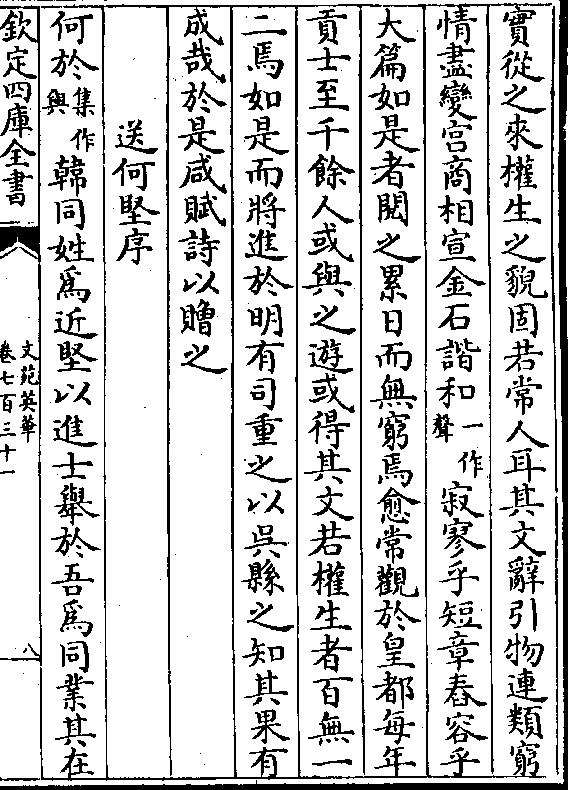 實從之來權生之貌固若常人耳其文辭引物連類窮
情盡變宫商相宣金石諧和一作聲寂寥乎短章舂容乎
大篇如是者閲之累日而無窮焉愈常觀於皇都每年
貢士至千餘人或與之遊或得其文若權生者百無一
二焉如是而將進於明有司重之以吳縣之知其果有
成哉於是咸賦詩以贈之
送何堅序
何於集作與韓同姓為近堅以進士舉於吾為同業其在
欽定四庫全書
文苑英華
卷七百三十一
八